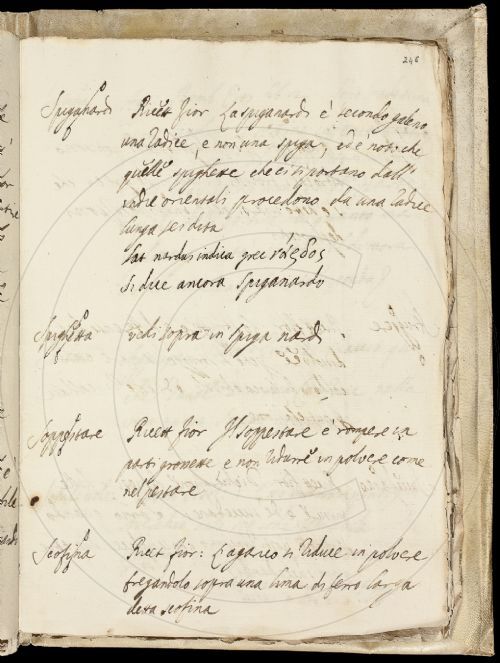 246
Spiganardi Ricett Fior La spiganardi è secondo galeno
una radice, e non una spiga, ed è noto che
quelle spighette che ci si portano dall'
Indie orientali procedono da una radice
lunga sei dita
Lat nardus indica grec νάρδος
si dice ancora spiganardo
Spighetta vedi sopra in spiga nardi.
Soppestare Ricett Fior Il soppestare è rompere in
parti grossette e non ridurre in polvere come
nel pestare
Scofina Ricett Fior: L'agarico si riduce in polvere
fregandolo sopra una lima di ferro larga
detta scofina